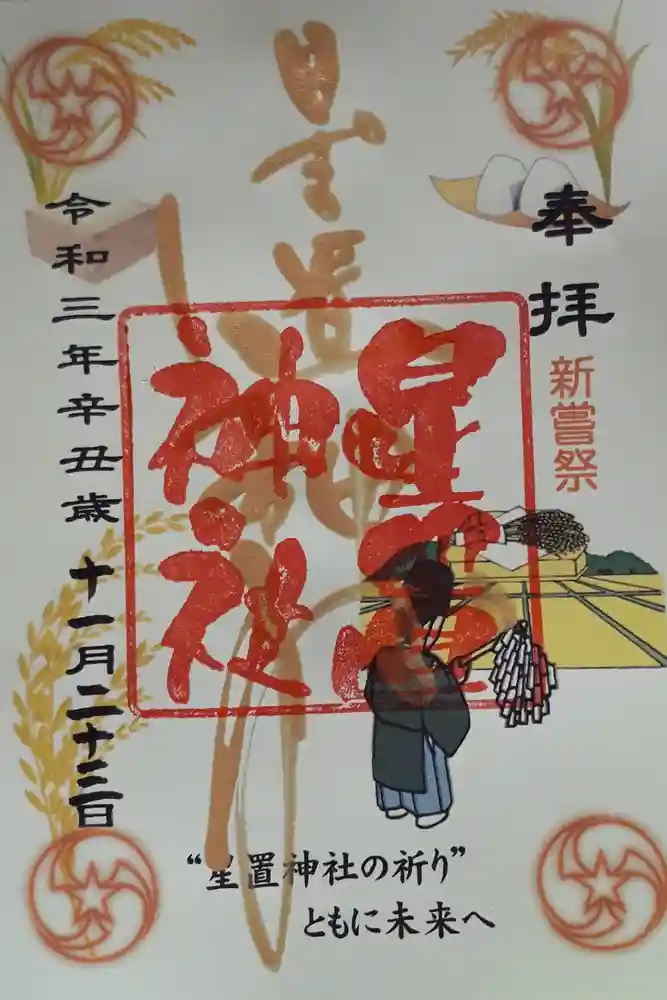 奉拝
新嘗祭
星置神社
星置神社
令和三年辛丑歳十一月二十三日
“星置神社の祈り”
ともに未来へ